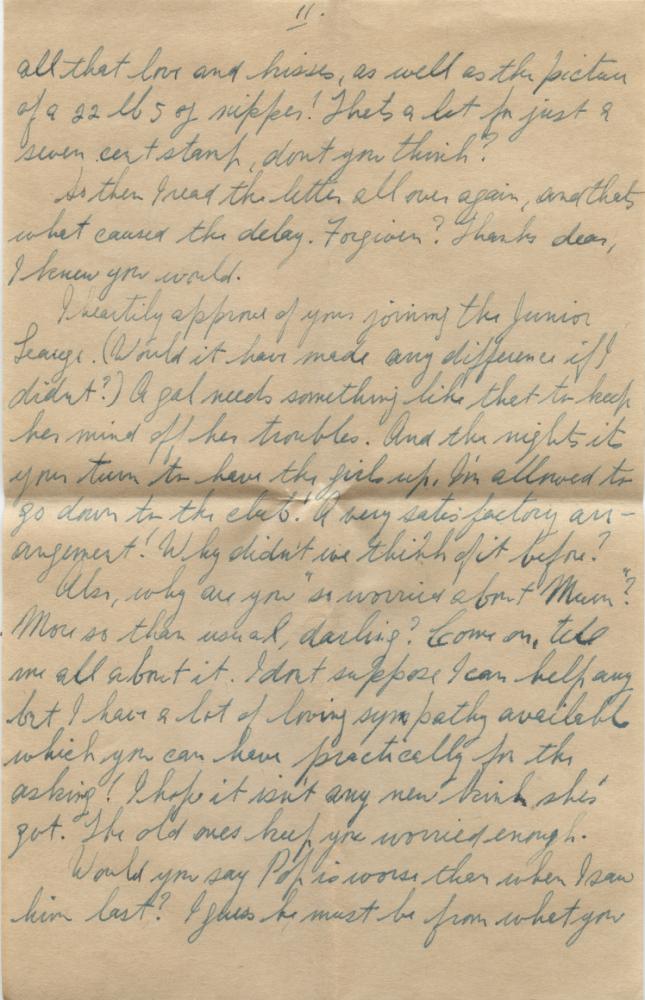 11.
all that love and kisses, as well as the picture
of a 22 lb 5 oz nipper! Thats a lot for just a
seven cent stamp, dont you think?
So then I read the letter all over again, and thats
what caused the delay. Forgiven? Thanks dear,
I knew you would.
I heartily approve of your joining the Junior
League. (Would it have made any difference if I
didnt?) A gal needs something like that to keep
her mind off her troubles. And the nights its
your turn to have the girls up, Im allowed to
go down to the club! A very satisfactory arr-
angement! Why didn't we think of it before?
Also, why are you "so worried about Mum"?
More so than usual, darling? Come on, tell
me all about it. I dont suppose I can help any
but I have a lot of loving sympathy available
which you can have practically for the
asking! I hope it isn't any new kink she's
got. The old ones keep you worried enough.
Would you say Pop is worse than when I saw
him last? I guess he must be from what you